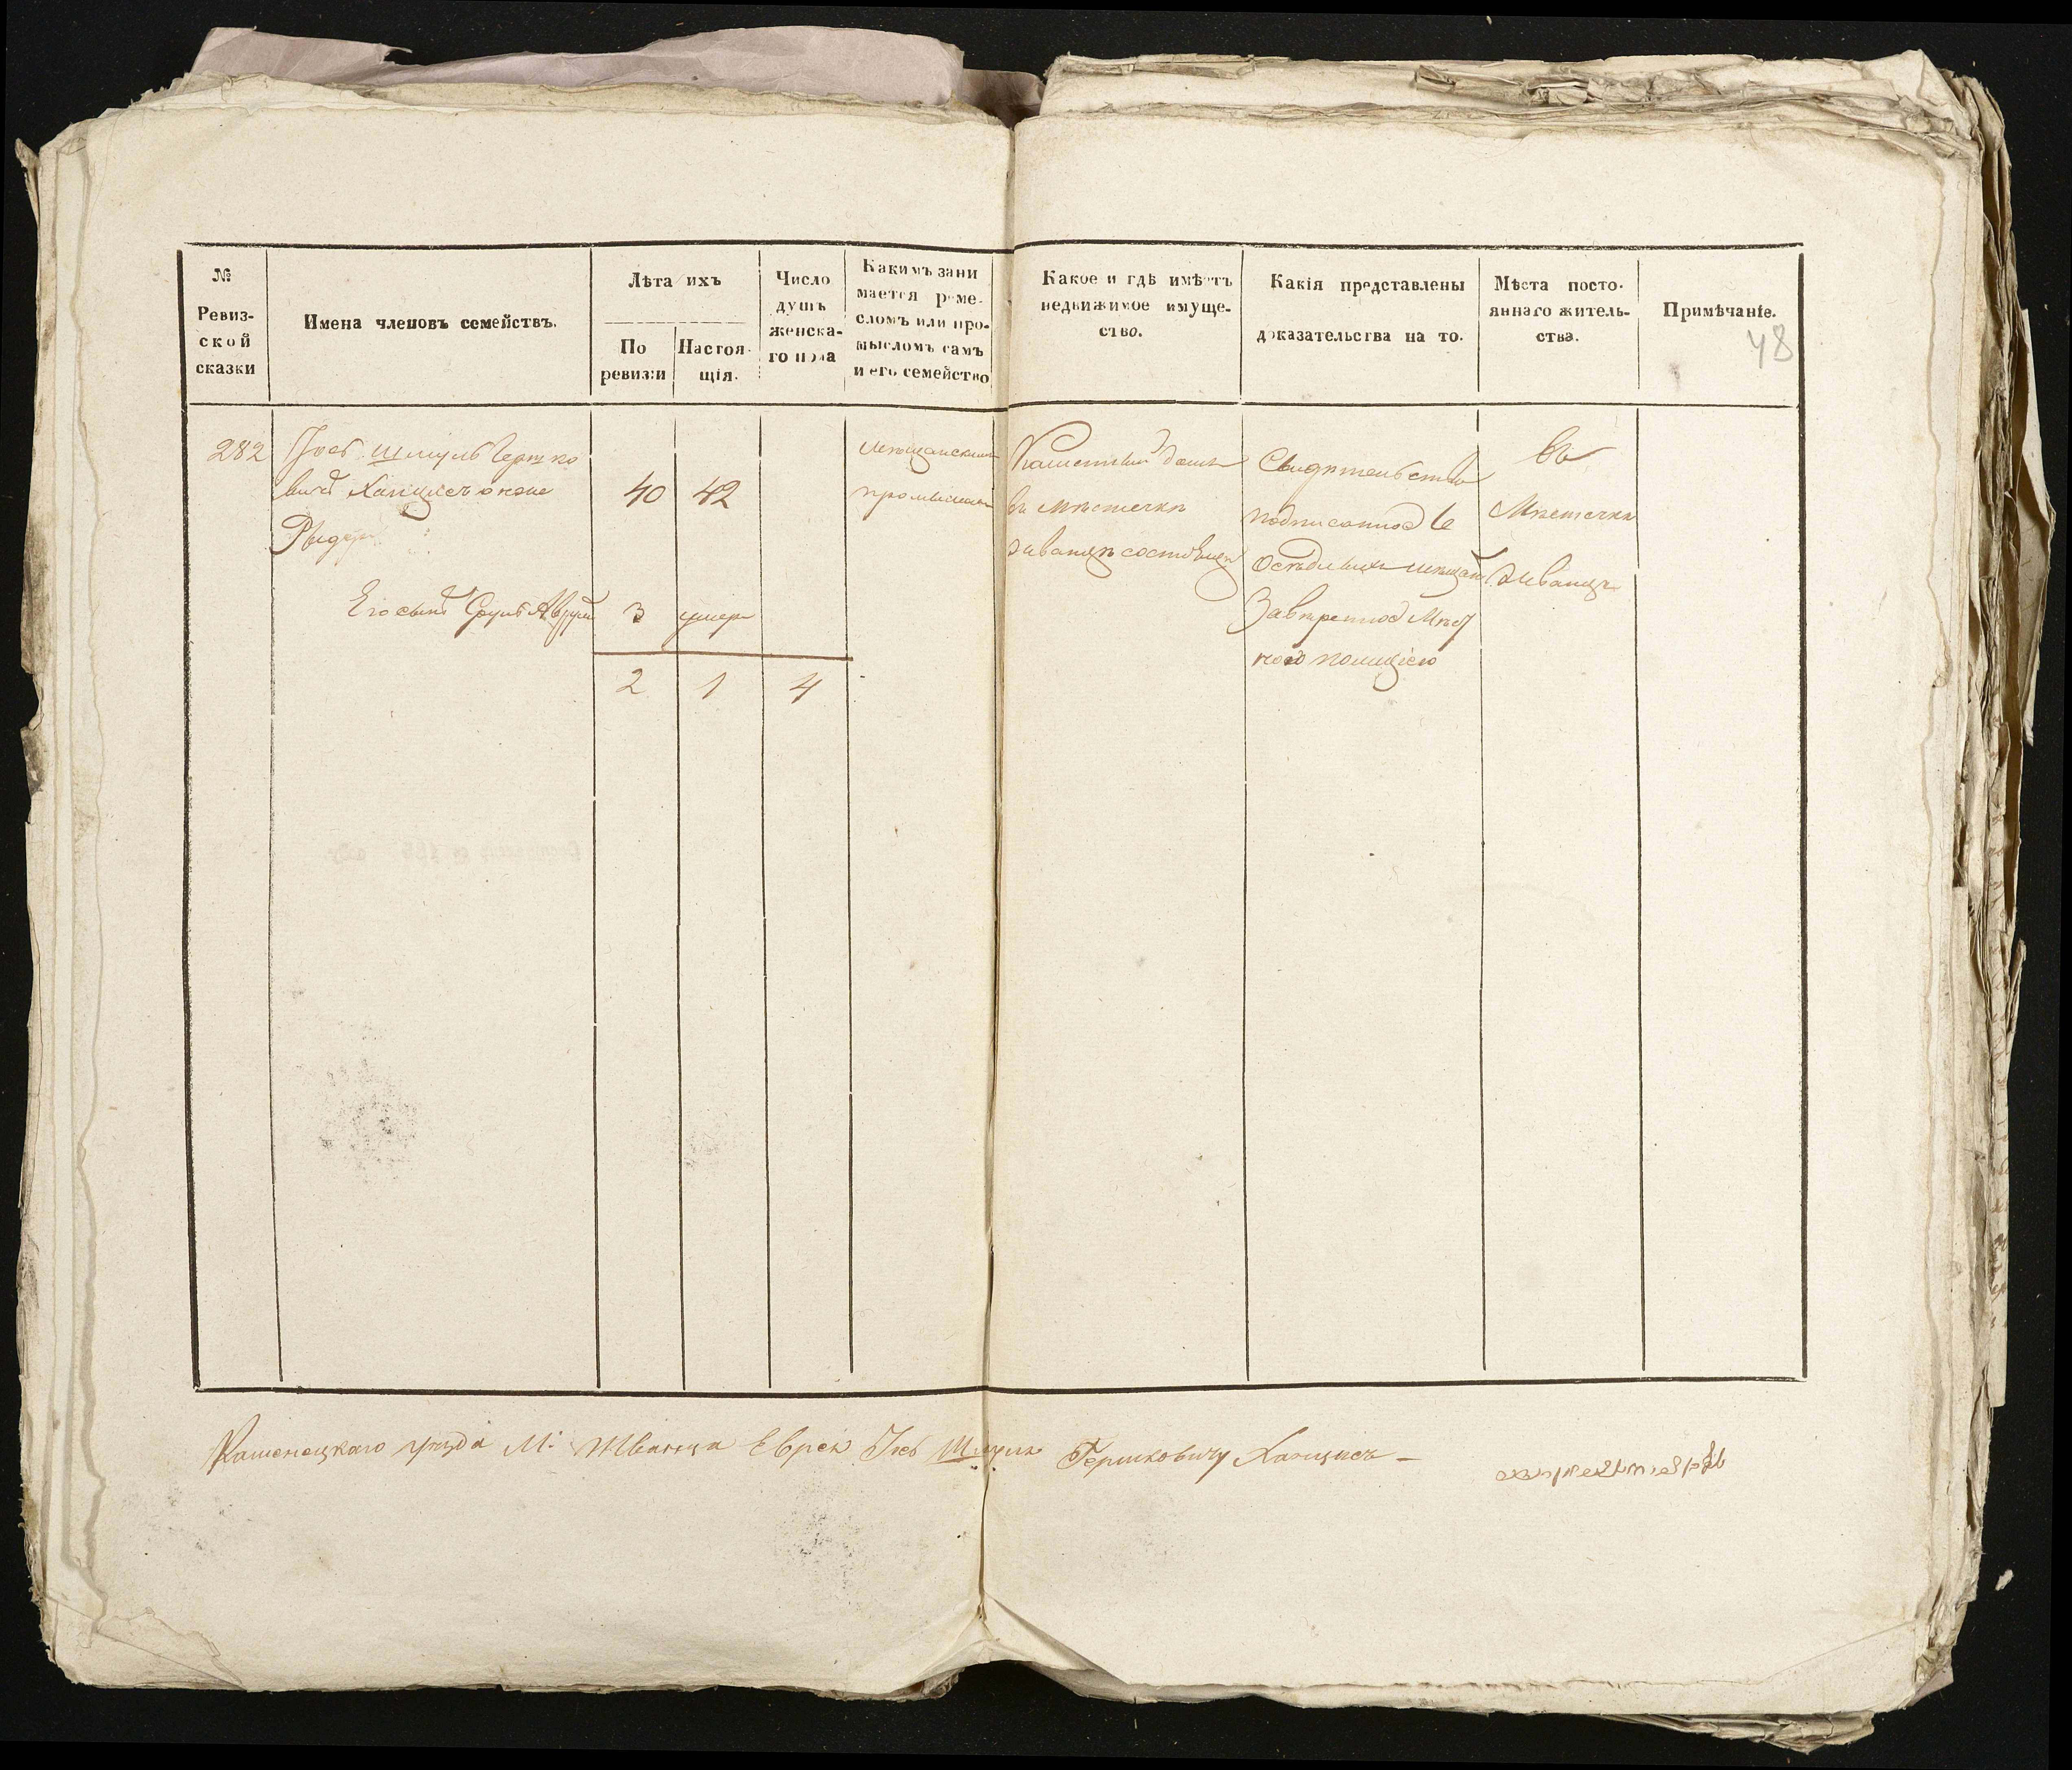 №
Ревиз-
ской
сказки
Имена членовъ семействъ.
Лѣта ихъ
По
ревизіи
Настоя-
щія.
Число
душъ
женска-
го пола
Какимъ зани
мается реме-
сломъ или про-
мысломъ самъ
и его семейство
Какое и гдѣ имѣетъ
недвижимое имуще-
ство.
Какія представлены
доказательства на то.
Мѣста посто-
яннаго житель-
ства.
Примѣчаніе.
48
282
Іось Шмуль Гершко
вичъ Хапцись онже
40
42
мещанскимъ
промысломъ
Каменный домъ
въ мѣстечкѣ
Жванцѣ состоящій
Свидѣтельство
подписанное 6
осѣдлыхъ мещанъ
Завѣренное Мѣст
ною полиціею
въ
Мѣстечкѣ
Жванцѣ
Его сынъ Сруль Аврумъ
3
умеръ
2
1
4
Каменецкаго уѣзда М: Жванца Еврей Іось Шмуль Гершковичу Хапцись